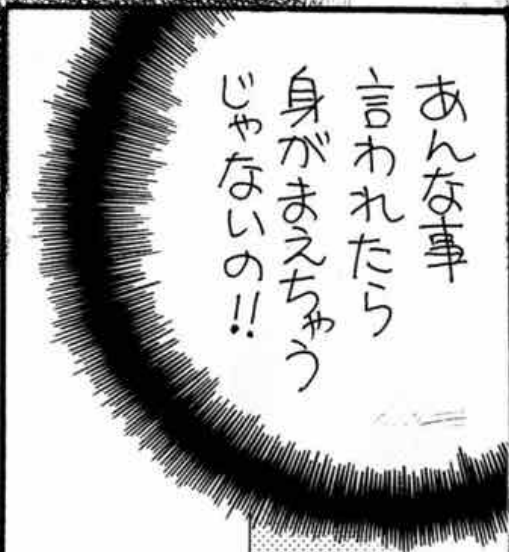 あんな事
言われたら
身がまえちゃう
じゃないの!!